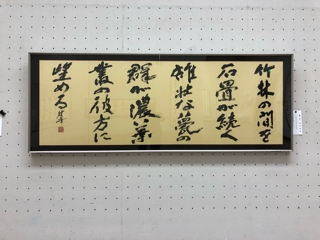 竹林の間を
石畳が続く
雄壮な甍の
群が濃い葉
叢の彼方に
望める